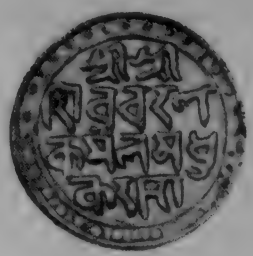 শ্রীশ্রী
শিবচরণ
কমলমধু
করস্য